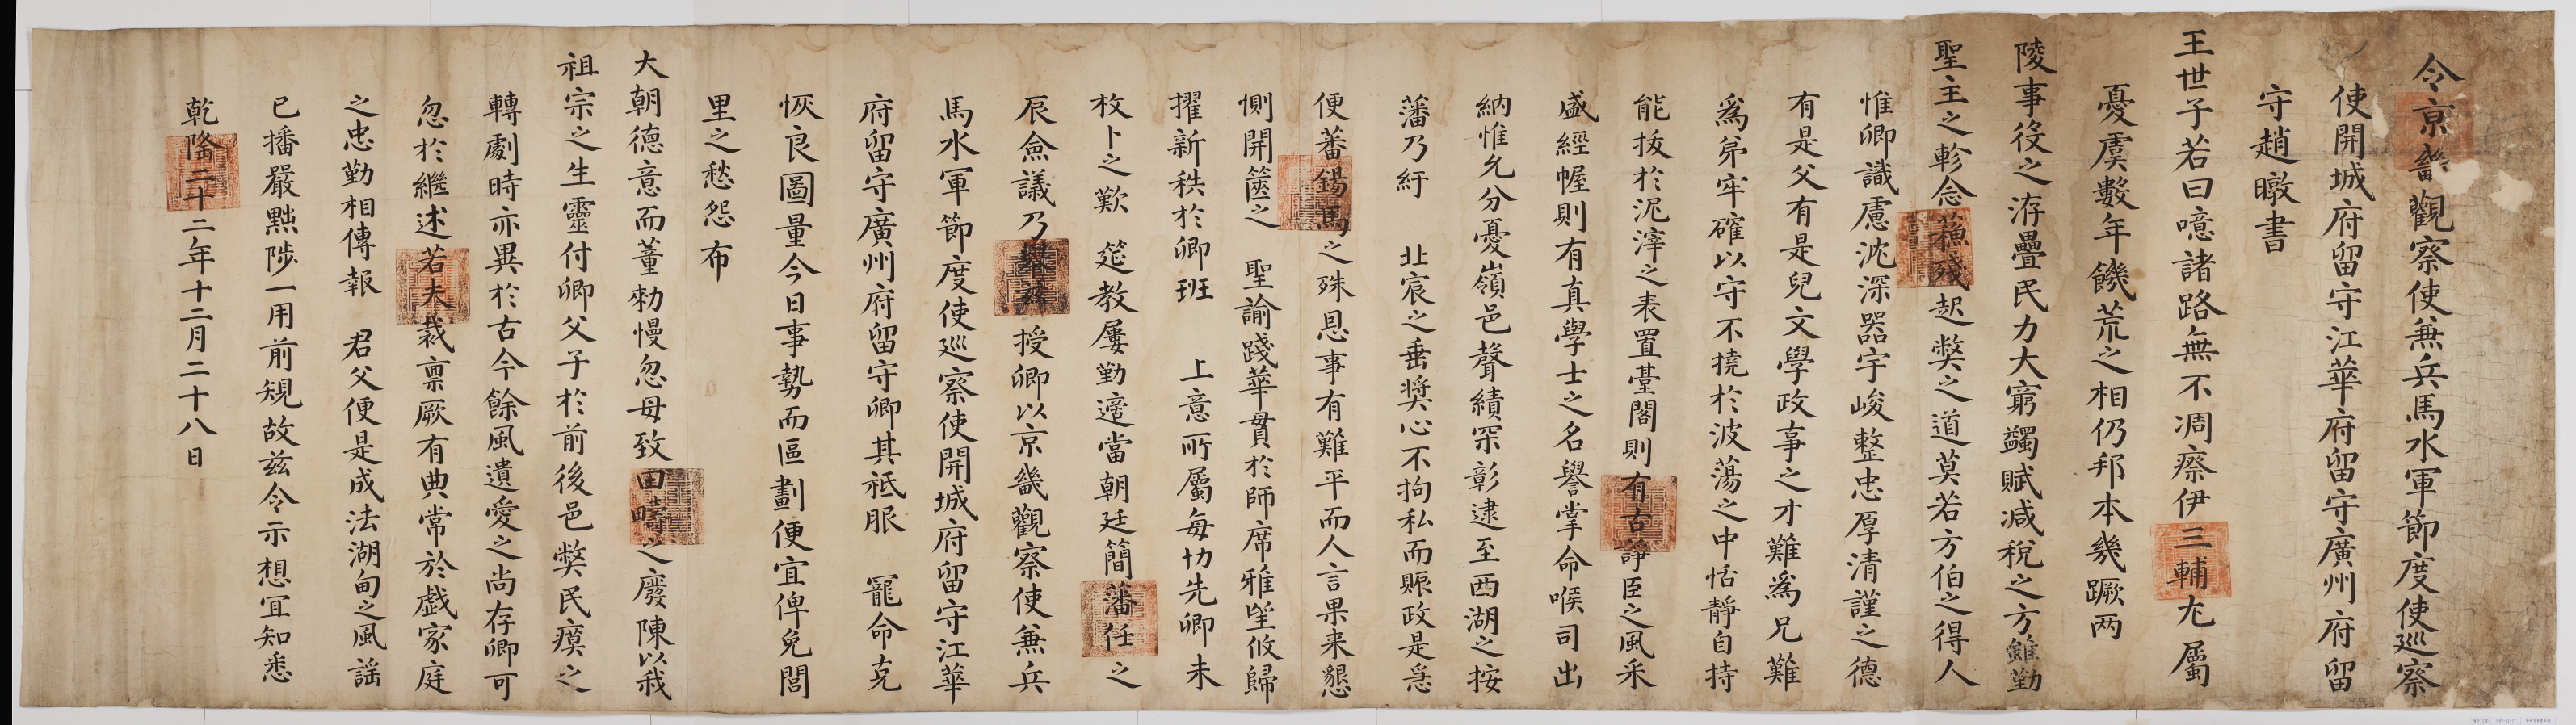 令京畿觀察使兼兵馬水軍節度使巡察
使開城府留守江華府留守廣州府留
守趙暾書
王世子若曰噫諸路無不凋瘵伊三輔尤屬
憂虞數年饑荒之相仍邦本幾蹶兩
陵事役之洊疊民力大窮蠲賦減稅之方雖勤
聖主之軫念蘓殘起獘之道莫若方伯之得人
惟卿識慮沈深器宇峻整忠厚清謹之德
有是父有是兒文學政事之才難爲兄難
爲弟牢確以守不撓於波蕩之中恬靜自持
能拔於泥滓之表置臺閣則有古諍臣之風采
盛經幄則有真學士之名譽掌命喉司出
納惟允分憂嶺邑聲績罙彰逮至西湖之按
藩乃紆 北宸之垂奬心不拘私而賑政是急
便蕃錫馬之殊恩事有難平而人言果来懇
惻開篋之 聖諭踐華貫於師席雅望攸歸
擢新秩於卿班 上意所屬每切先卿未
枚卜之歎 筵教屢勤適當朝廷簡藩任之
辰僉議乃 授卿以京畿觀察使兼兵
馬水軍節度使巡察使開城府留守江華
府留守廣州府留守卿其祗服 寵命克
恢良圖量今日事勢而區劃便宜俾免閭
里之愁怨布
大朝德意而董勑慢忽毋致田疇之廢陳以我
祖宗之生靈付卿父子於前後邑獘民瘼之
轉劇時亦異於古今餘風遺愛之尚存卿可
忽於繼述若夫裁禀厥有典常於戱家庭
之忠勤相傳報 君父便是成法湖甸之風謡
已播嚴黜陟一用前規故茲令示想宜知悉
乾隆二十二年十二月二十八日